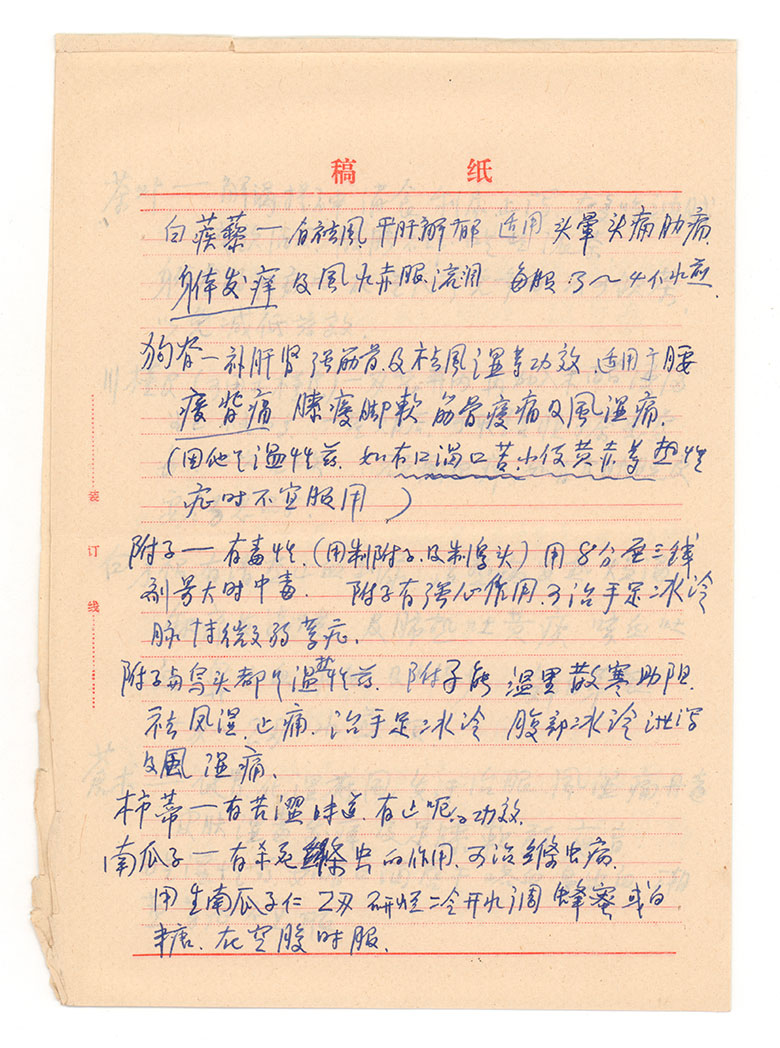 稿 纸
白蒺藜一有祛風,平肝解郁 适用 头暈 头痛肋痛.
身体发痒及風火赤眼流泪 每服 3~4个水煎.
狗脊一补肝肾 强筋骨.及祛風湿等功效,适用于腰
痠背痛 膝痠脚軟 筋骨痠痛及風湿痛.
(因他是温性药. 如有口渴口苦,小便黄赤等 热性
症时不宜服用 )
装
订
线
附子一有毒性.(用制附子.及制烏头)用8分至三钱
剂量大时中毒. 附子有强心作用.可治手足冰冷
脉特微弱等症.
附子与烏头都是温热性药. 附子能 温里散寒助阳.
祛风湿.止痛.治手足冰冷 腹部冰冷泄泻
及風湿痛.
柿蒂一有苦澀味道.有止呃的功效.
南瓜子一有杀死絛虫的作用.可治絛虫病.
用生南瓜子仁 2双 研烂 冷开水调 蜂蜜或白
糖.在空腹时服.